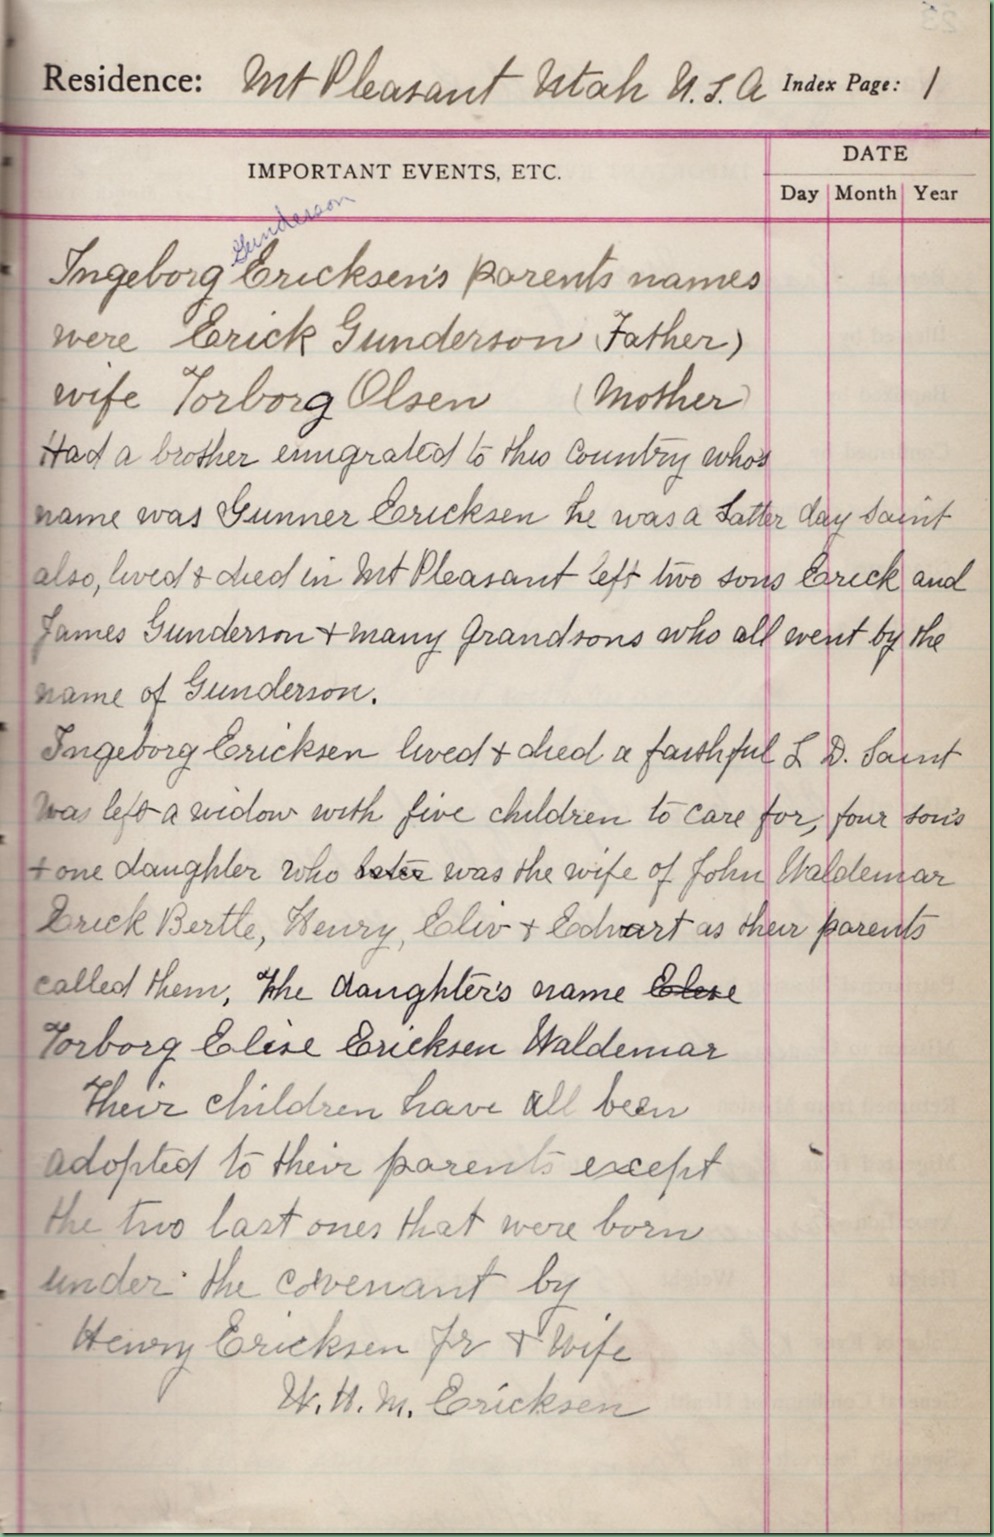 Residence: Mt Pleasant Utah U.S.A Index Page: 1
IMPORTANT EVENTS, ETC.
DATE
Day Month Year
Gunderson
Ingeborg Ericksen's parents names
were Erick Gunderson (Father)
wife Torborg Olsen (Mother)
Had a brother emigrated to this country who's
name was Gunner Ericksen he was a Latter day saint
also, lived & died in Mt Pleasant left two sons Erick and
James Gunderson & many grandsons who all went by the
name of Gunderson.
Ingeborg Ericksen lived & died a faithful L D. Saint
Was left a widow with five children to care for, four son's
& one daughter who later was the wife of John Waldemar
Erick Bertle, Henry, Eliv & Edwart as their parents
called them, The daughter's name Elese
Torborg Elise Ericksen Waldemar
Their children have all been
adopted to their parents except
the two last ones that were born
under the covenant by
Henry Ericksen Jr & Wife
W. H. M. Ericksen